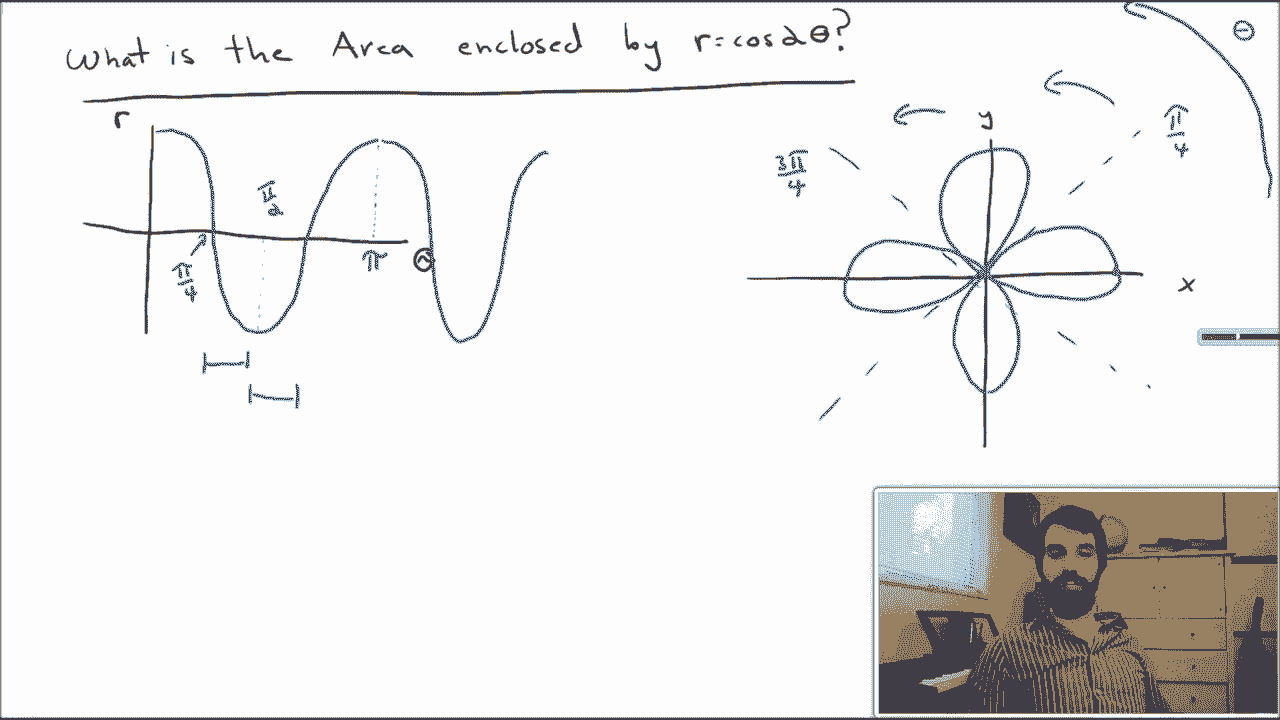 What is the Area enclosed by r=cos2θ?
r
π/2
π/4
π
θ
y
x
3π/4
π/4
θ